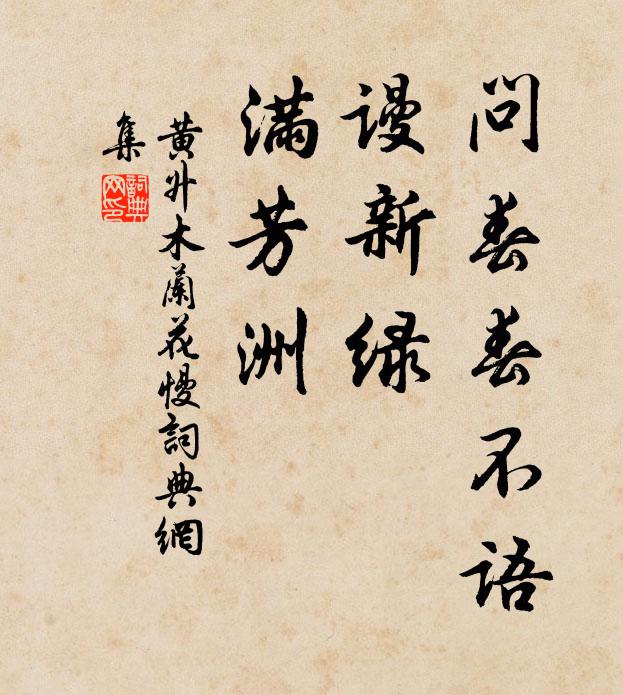 问春春不语
谩新绿
满芳洲
黄升木兰花慢词典網
集
詞典
网印